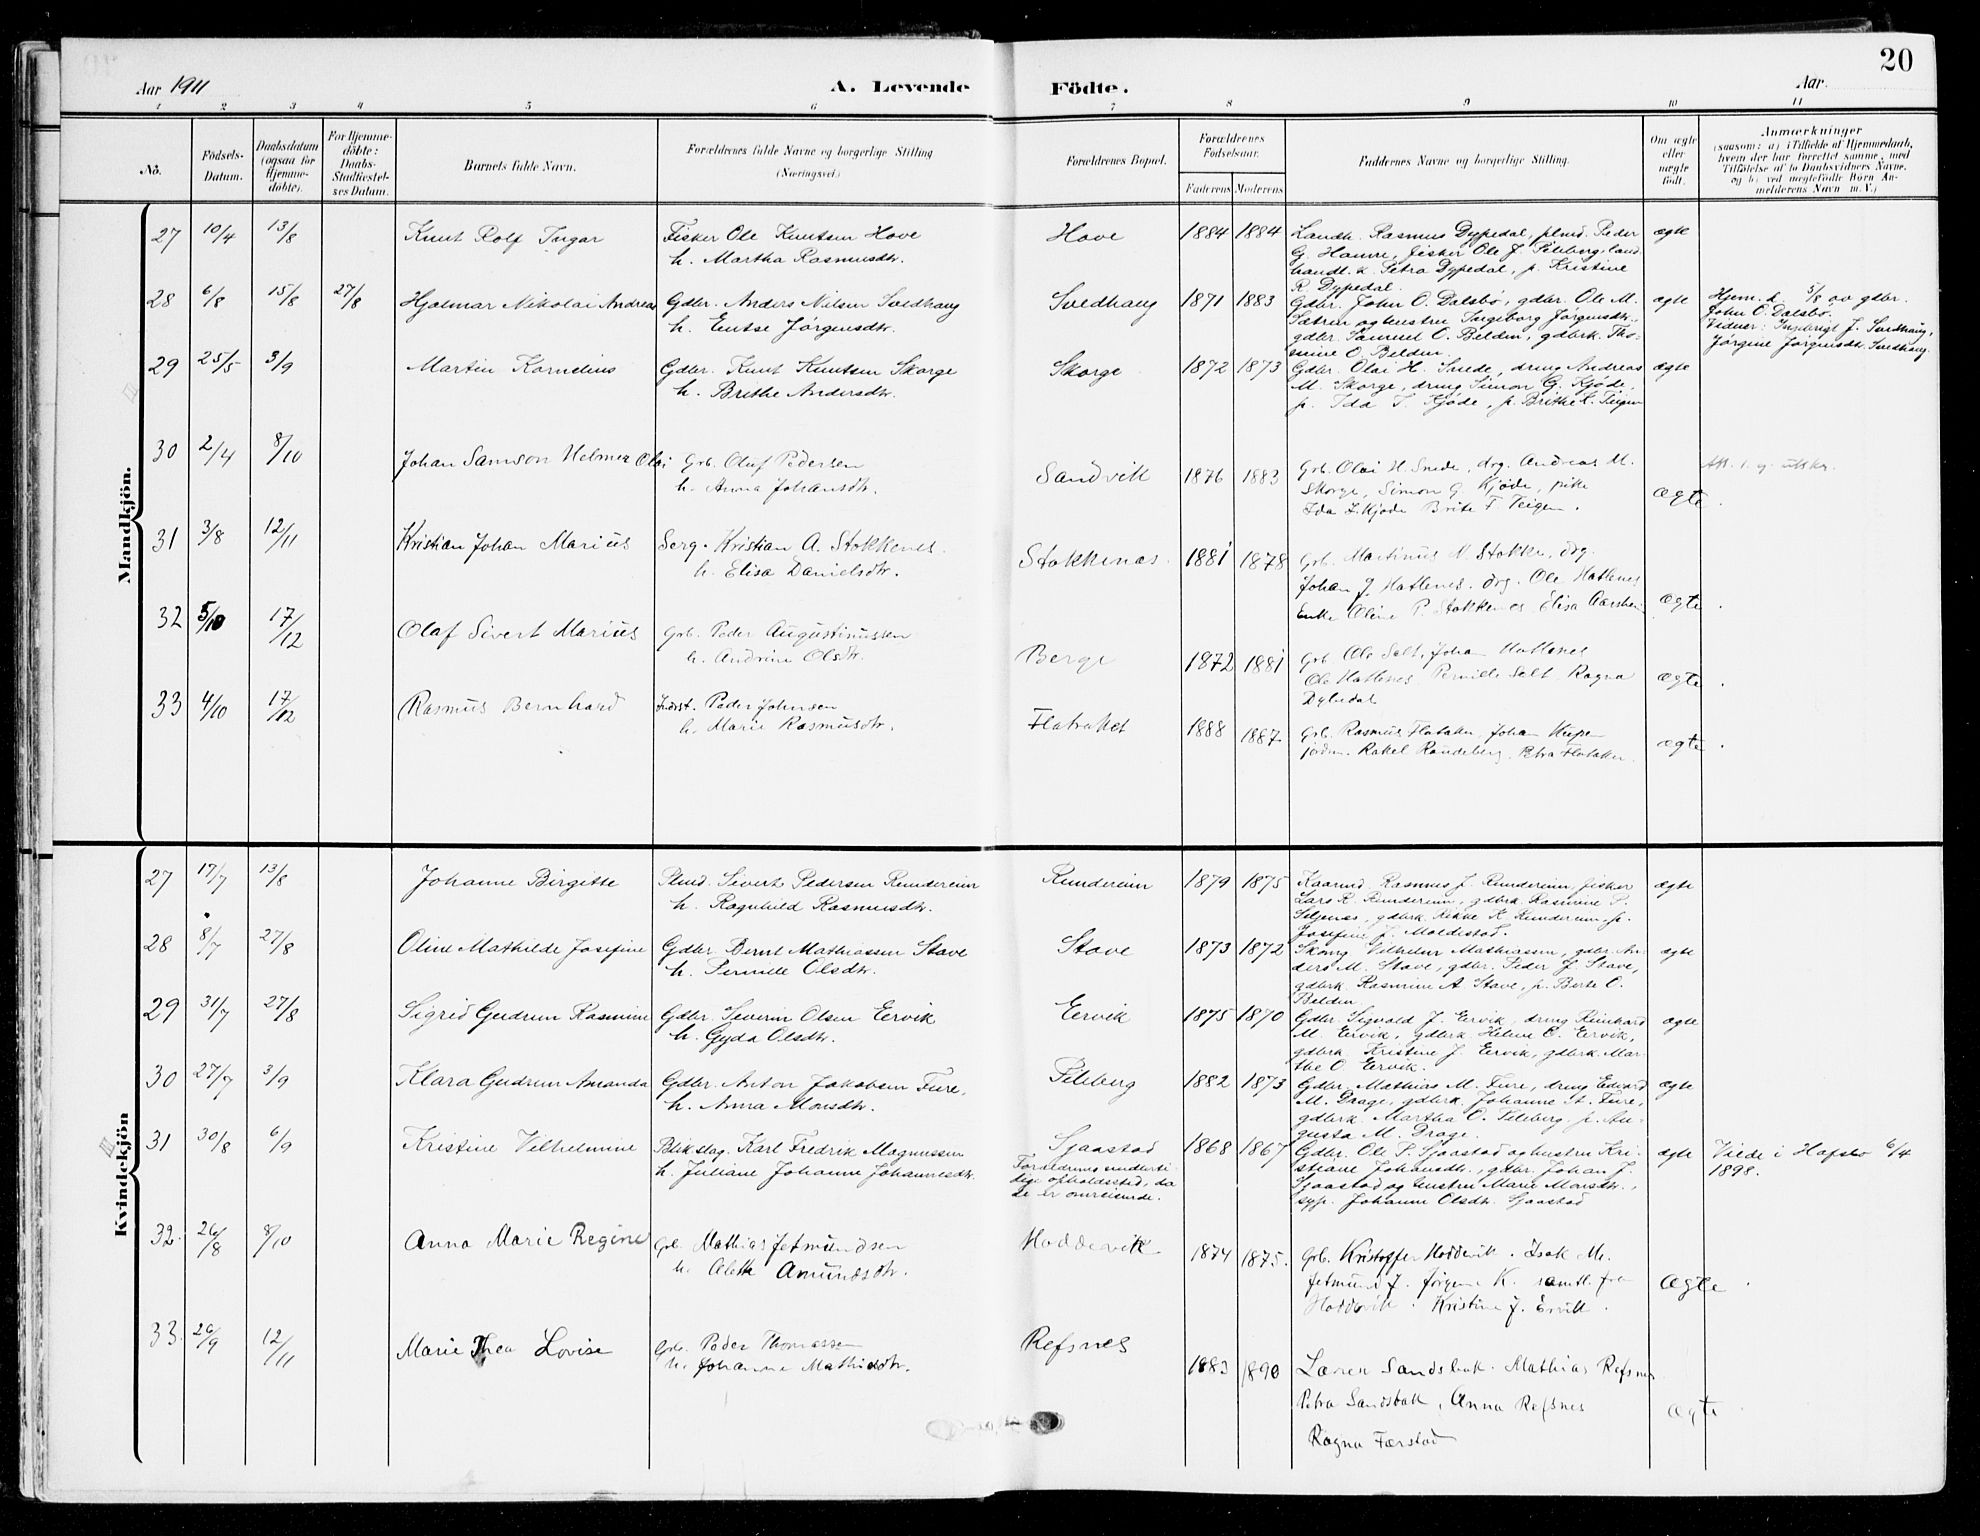 20
Aar 1911
A. Levende
Födte.
Aar
1 2 3 4 5 6 7 8 9 10 11
No.
Födsels-
Datum.
Daabsdatum
(ogsaa for
Hjemme-
döbte).
For Hjemme-
döbte:
Daabs-
Stadfæstel-
ses Datum.
Barnets fulde Navn.
Forældrenes fulde Navne og borgerlige Stilling
(Næringsvei.)
Forældrenes Bopæl.
Forældrenes
Födselsaar.
Faderens Moderens
Faddernes Navne og borgerlige Stilling.
Om ægte
eller
uægte
födt.
Anmærkninger
(saasom: a) i Tilfælde af Hjemmedaab,
hvem der har forrettet samme, med
Tilföielse af to Daabsvidners Navne,
og b) ved uægtefödte Börn An-
melderens Navn m. V.)
Mandkjön.
27 10/4 13/8 Knut Rolf Ingar
Fisker Ole Knutsen Hove
h. Martha Rasmusdtr.
Hove 1884 1884
Landh. Rasmus Dypedal, plmd. Peder
G. Hamre, fisker Ole J. Pileberg, land
handl. k. Petra Dypedal, p. Kristine
R. Dypedal.
ægte
28 6/8 15/8 27/8 Hjalmar Nikolai Andreas
Gdbr. Anders Nilsen Svedhaug
h. Eintse Jørgensdtr.
Svedhaug 1871 1883
Gdbr. John O. Dalsbø, gdbr. Ole M.
Sætren og hustru Ingeborg Jørgensdtr.,
gdbr. Samuel O. Belden, gdbrk. Tho-
mine O. Belden.
ægte
Hjem. d. 5/8 av gdbr.
John O. Dalsbø.
Vidner: Ingebrigt J. Svedhaug,
Jørgine Jørgensdtr. Svedhaug.
29 25/5 3/9 Martin Kornelius
Gdbr. Knut Knutsen Skorge
h. Brithe Andersdtr.
Skorge 1872 1873
Gdbr. Olai H. Snede, dreng Andreas
M. Skorge, dreng Simon G. Kjøde,
p. Ida I. Kjøde, p. Brithe K. Teigen
ægte
30 2/4 8/10 Johan Samson Helmer Olai
Grb. Oluf Pedersen
h. Anna Johansdtr.
Sandvik 1876 1883
Grb. Olai H. Snede, drg. Andreas M.
Skorge, Simon G. Kjøde, pike
Ida I. Kjøde Brite F. Teigen.
ægte.
31 3/8 12/11 Kristian Johan Marius
Serg. Kristian A. Stokkenes.
h. Elisa Danielsdtr.
Stokkenæs. 1881 1878
Grb. Martinus N. Stokke, drg.
Johan J. Hatlenes. drg. Ole Hatlenes
Enke Oline P. Stokkenes Elisa Aarsheim
ægte.
32 5/10 17/12 Olaf Sivert Marius
Grb. Peder Augustinussen
h. Andrine Olsdtr.
Berge 1872 1881
Grb. Ole Salt, Johan Hatlenes
Ole Hatlenes Pernille Salt. Ragna
Dybedal
ægte.
33 4/10 17/12 Rasmus Bernhard
Inderst. Peder Johnsen
h. Marie Rasmusdtr.
Flatraket 1888 1887
Grb. Rasmus Flataker, Johan
Rakel Randeberg. Petra Flataker.
ægte.
Kvindekjön
27 17/7 13/8 Johanne Birgitte
Plmd. Sivert Pedersen Rundereim
h. Ragnhild Rasmusdtr.
Rundereim 1879 1875
Kaarmd. Rasmus J. Rundereim, fisker
Lars R. Rundereim, gdbrk. Rasmine P.
Seljenæs, gdbrk. Rikke K. Rundereim, p.
Josefine J. Moldestad.
ægte
28 8/7 27/8 Oline Mathilde Josefine
Gdbr. Bernt Mathiassen Stave
h. Pernille Olsdtr.
Stave 1873 1872
Skomg. Vilhelm Mathiassen, gdbr. An-
ders M. Stave, gdbr. Peder J. Stave,
gdbrk. Rasmine A Stave, p. Berte O.
Belden.
ægte
29 31/7 27/8 Sigrid Gudrun Rasmine
Gdbr. Severin Olsen Eervik
h. Gyda Olsdtr.
Eervik 1875 1870
Gdbr. Sigvald J. Eervik, dreng Reinhard
M. Eervik, gdbrk Helene O. Eervik,
gdbrk. Kristine J. Eervik, gdbrk. Mar-
the O. Eervik.
ægte
30 27/7 3/9 Klara Gudrun Amanda
Gdbr. Anton Jakobsen Fure,
h. Anna Monsdtr.
Pileberg 1882 1873
Gdbr. Mathias M. Fure, dreng Edvard
M. Drage, gdbrk. Johanne A. Fure,
gdbrk. Martha O. Pileberg, p. Au-
gusta M. Drage.
ægte
31 30/8 6/9 Kristine Vilhelmine
Blikslag. Karl Fredrik Magnussen
h. Juliane Johanne Johannesdtr.
Sjaastad
Forældrenes midlerti-
dige opholdssted, da
de er omreisende.
1868 1867
Gdbr. Ole P. Sjaastad og hustru Kri-
stiane Johansdtr., gdbr. Johan J.
Sjaastad og hustru Marie Monsdtr.,
syp. Johanne Olsdtr. Sjaastad
ægte
Viede i Hafslo 6/4
1898.
32. 26/8 8/10 Anna Marie Regine
Grb. Mathias Jetmundsen
h. Alette Amundsdtr.
Hoddevik 1874 1875.
Grb. Kristoffer Hoddevik. Isak M.
Jetmund J. Jørgen K. samtl. fra
Hoddevik. Kristine J. Ervik.
ægte.
33. 26/9 12/11 Marie Thea Lovise
Grb. Peder Thomassen
h. Johanne Mathiasdtr.
Refsnes 1883 1890
Laren Sandsbak. Mathias Refsnes
Petra Sandsbak, Anna Refsnes
Ragna Færstad
ægte